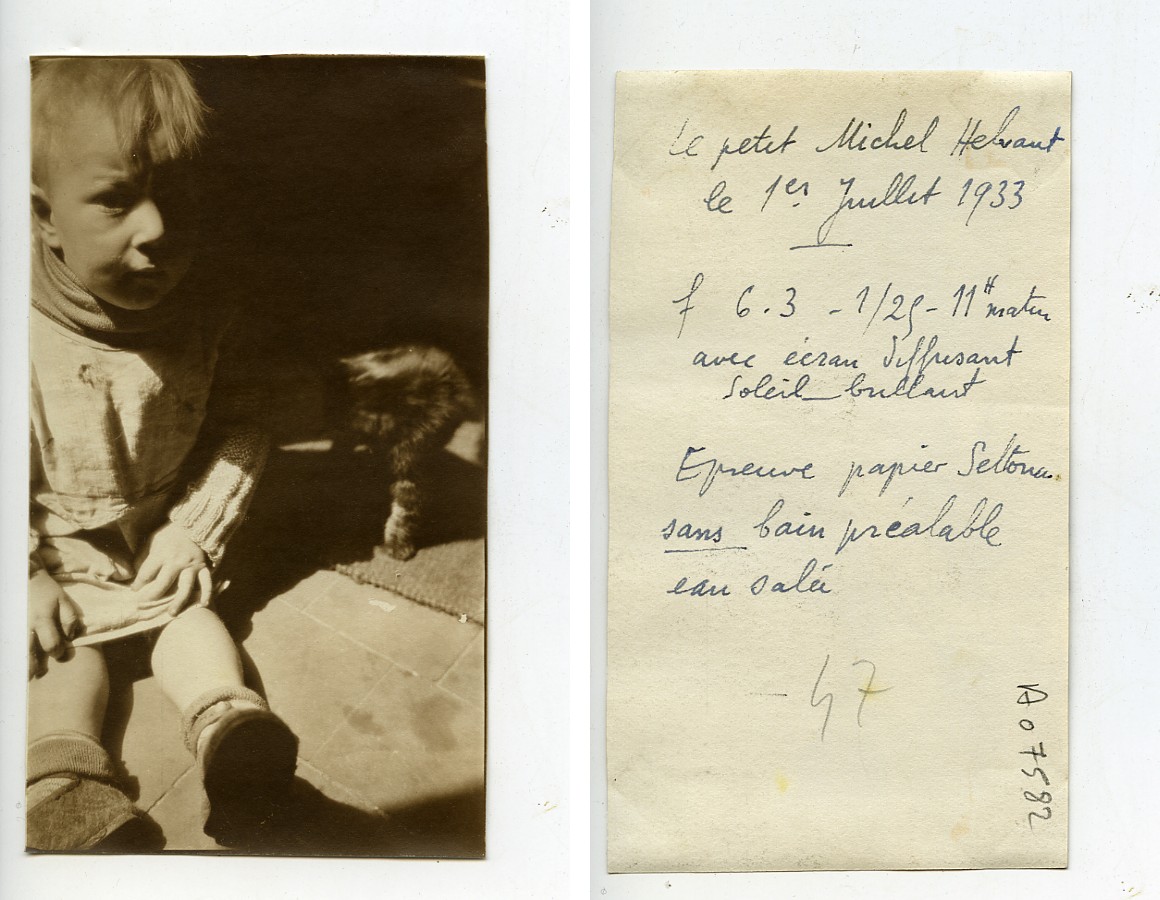 Le petit Michel Helvant
le 1er Juillet 1933
f 6.3 - 1/25 - 11H matin
avec écran diffusant
Soleil brillant
Epreuve papier Seltona
sans bain préalable
eau salée
- 47
A07582